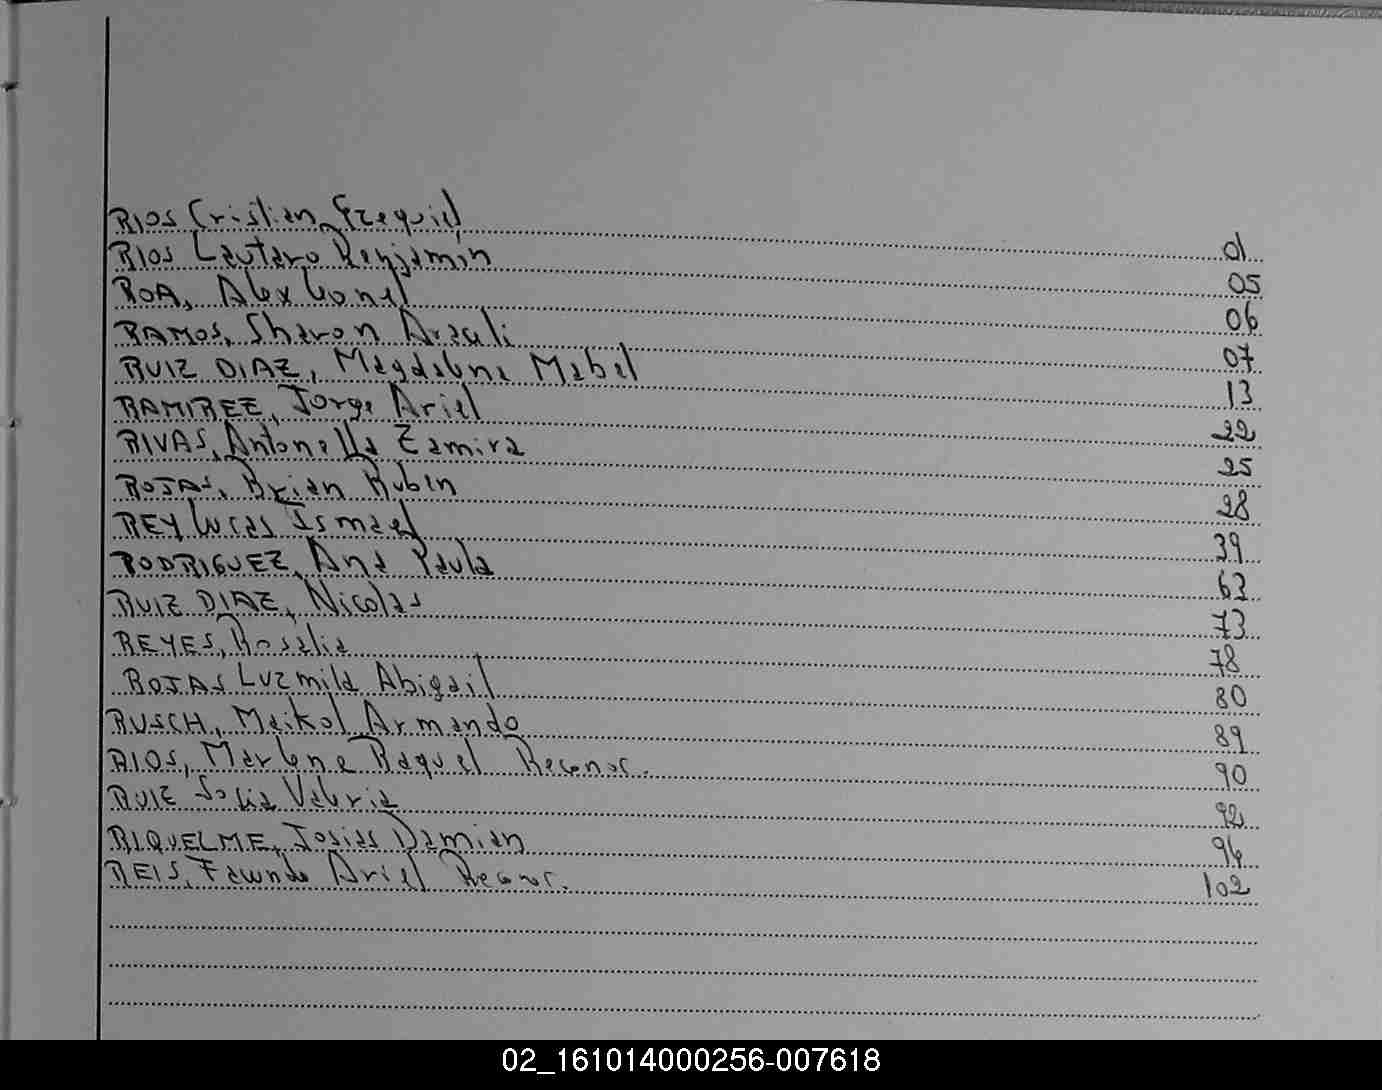 RIOS Cristian Ezequiel 01
RIOS Lautaro Benjamín 05
ROA, Alex Leonel 06
RAMOS, Sharon Araceli 07
RUIZ DIAZ, Magdalena Mabel 13
RAMIREZ, Jorge Ariel 22
RIVAS, Antonella Zamira 25
ROJAS, Brian Rubén 28
REY Lucas Ismael 39
RODRIGUEZ, Ana Paula 63
RUIZ DIAZ, Nicolas 73
REYES, Rosalia 78
ROJAS Luzmila Abigail 80
RUSCH, Maikol Armando 89
RIOS, Marlene Raquel Reconoc. 90
RUIZ Valeria 92
RIQUELME, Josias Damian 96
REIS, Facundo Ariel Reconoc. 102
02_161014000256-007618